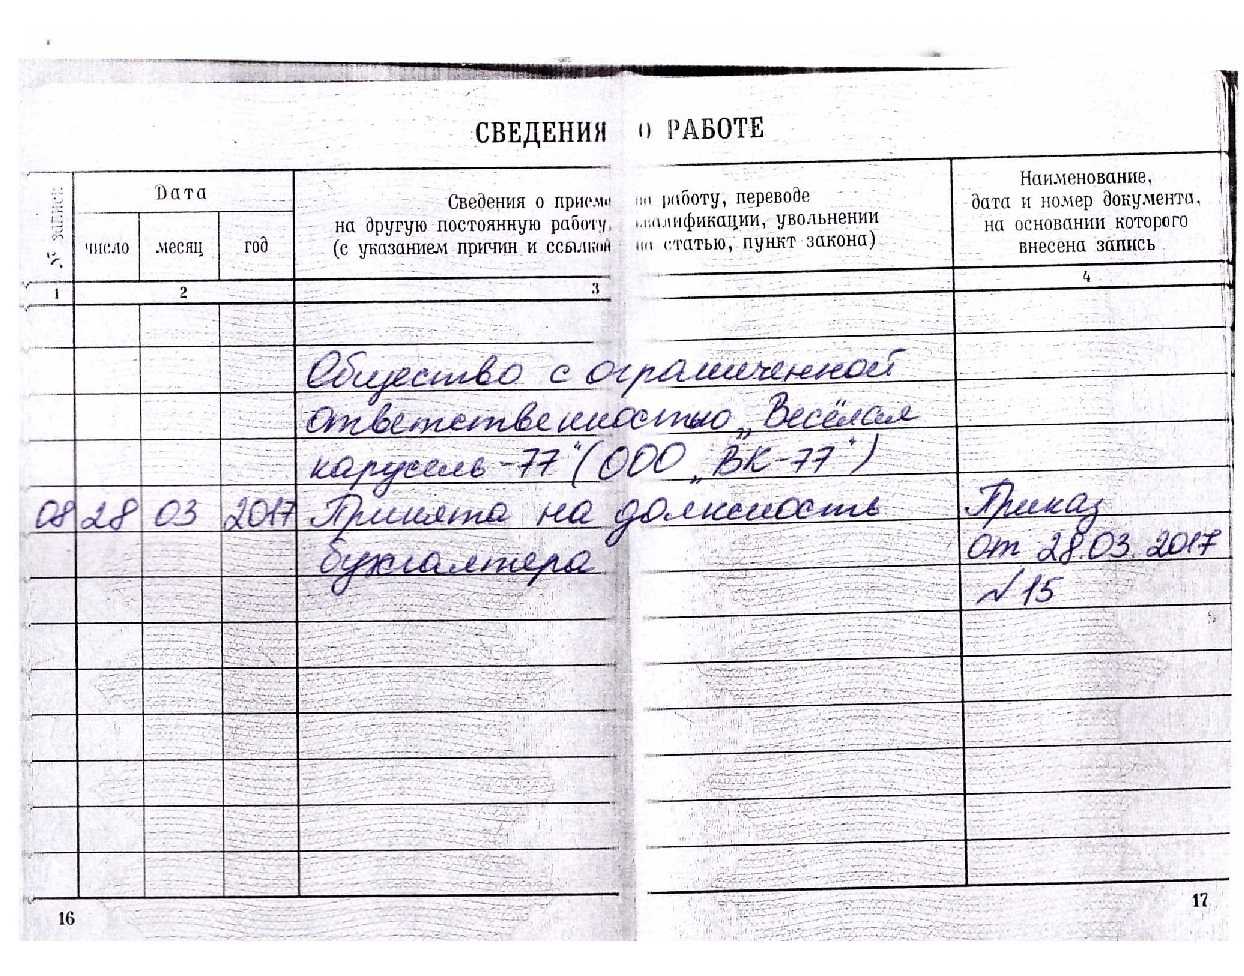 СВЕДЕНИЯ О РАБОТЕ
№ записи
Дата
число месяц год
Сведения о приеме на работу, переводе
на другую постоянную работу, квалификации, увольнении
(с указанием причин и ссылкой на статью, пункт закона)
Наименование,
дата и номер документа,
на основании которого
внесена запись
1 2 3 4
Общество с ограниченной
ответственностью „Весёлая
карусель-77" (ООО „ВК-77")
08 28 03 2017 Принята на должность Приказ
бухгалтера от 28.03.2017
№ 15
16 17